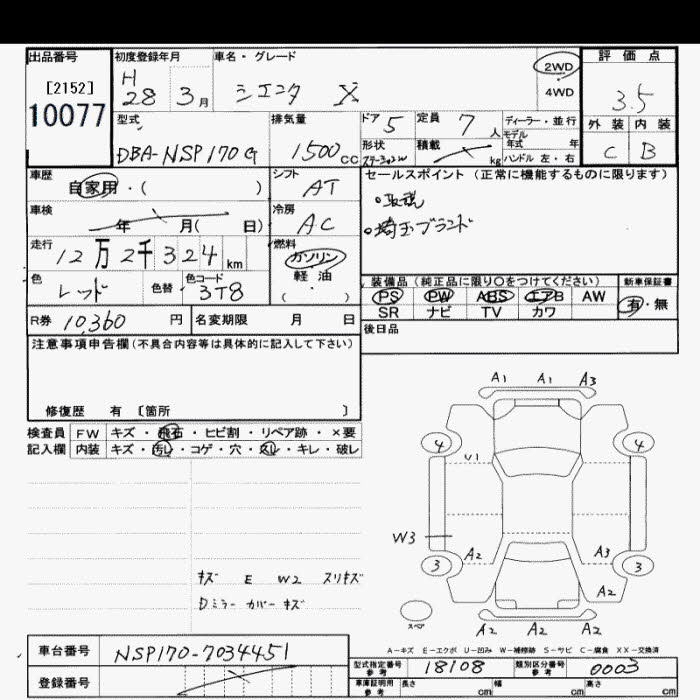 出品番号
[2152]
10077
初度登録年月
H 28 3月
車名・グレード
シエンタ X
2WD
4WD
評価点
3.5
外装 内装
C B
型式
DBA-NSP170G
排気量
1500cc
ドア 5
定員 7人
ディーラー・並行
モデル年式 年
形状
ステーションW
積載 kg
ハンドル 左・右
車歴
自家用・( )
シフト
AT
セールスポイント(正常に機能するものに限ります)
・取説
・埼玉ブランド
車検
年 月( 日)
冷房
AC
走行
12万2千324km
燃料
ガソリン
軽油
( ・ )
色
レッド
色替
色コード
3T8
装備品(純正品に限り○をつけてください)
PS PW ABS エアB AW
SR ナビ TV カワ
新車保証書
有・無
R券 10360 円
名変期限 月 日
後日品
注意事項申告欄(不具合内容等は具体的に記入して下さい)
修復歴 有 〔箇所 〕
検査員 FW キズ・飛石・ヒビ割・リペア跡・×要
記入欄 内装 キズ・汚れ・コゲ・穴・スレ・キレ・破レ
A1 A1 A3
4 4
U1
W3
A2 A3
3 3
A2
スペア
A2 A2 A2
キズ E W2 スリキズ
Dミラー カバー キズ
A-キズ E-エクボ U-凹み W-補修跡 S-サビ C-腐食 XX-交換済
車台番号 NSP170-7034451
登録番号
型式指定番号 参考 18108
類別区分番号 参考 0003
車庫証明用 参考 長さ cm 幅 cm 高さ cm